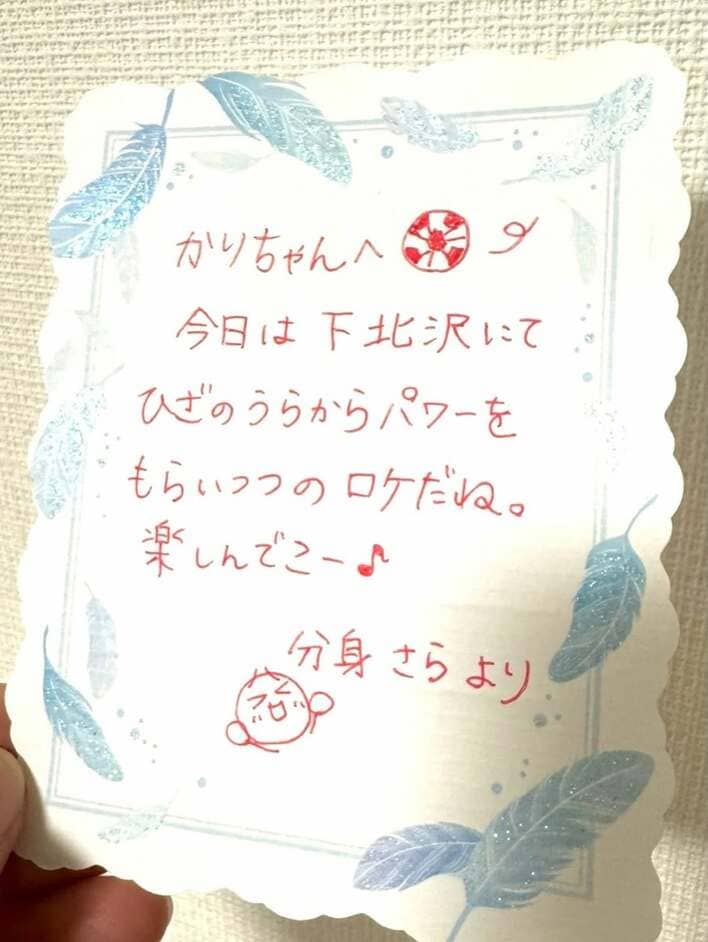 かりちゃんへ
今日は下北沢にて
ひざのうらからパワーを
もらいつつのロケだね。
楽しんでこー♪
分身さらより